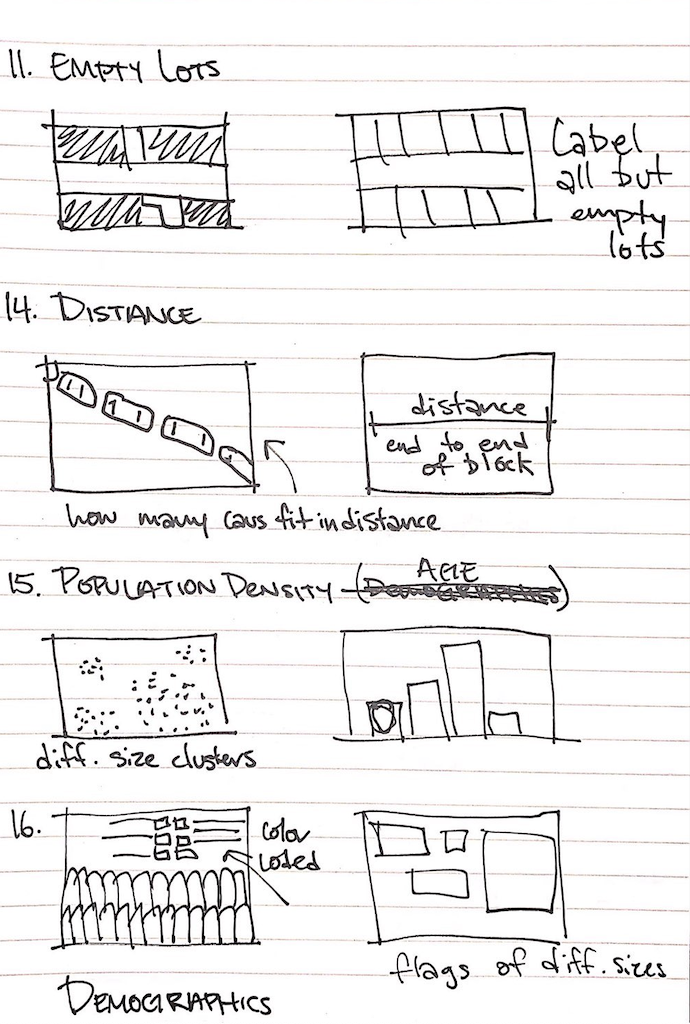 11. EMPTY LOTS
Label
all but
empty
lots
14. DISTANCE
distance
end to end
of block
how many cars fit in distance
AGE
15. POPULATION DENSITY – (DEMOGRAPHICS)
diff. size clusters
16.
color
coded
DEMOGRAPHICS
flags of diff. sizes